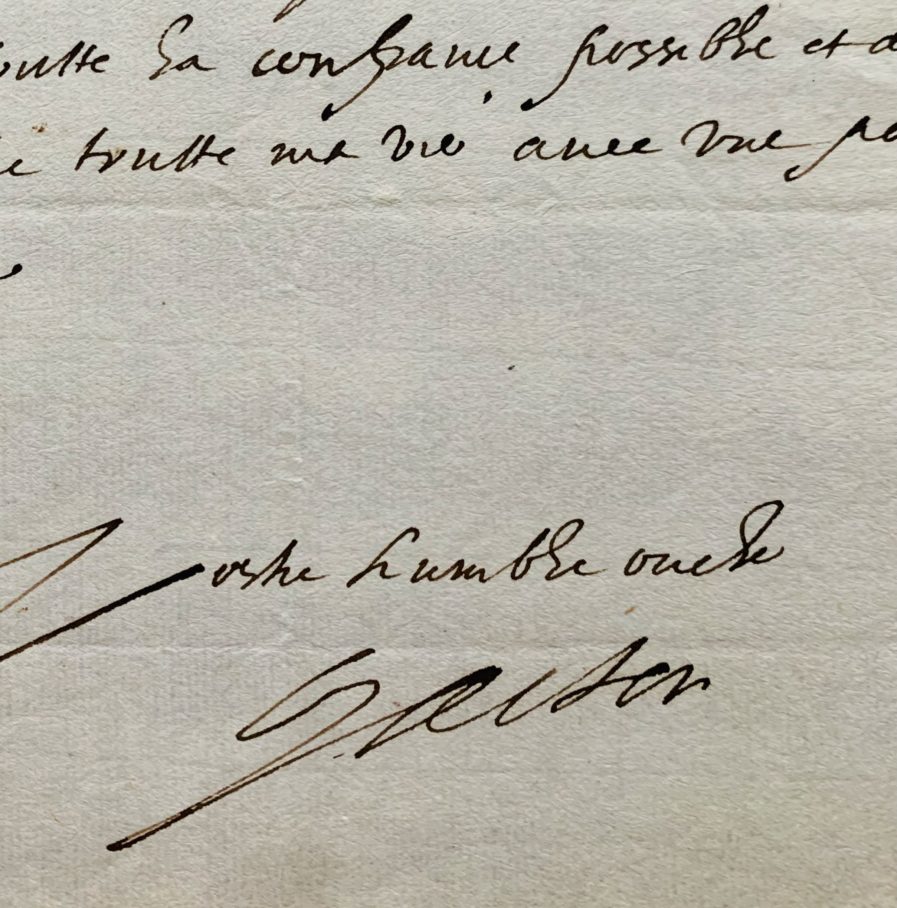 outte la confiance possible et
toutte ma vie auec vne
Vostre humble oncle
Gaston